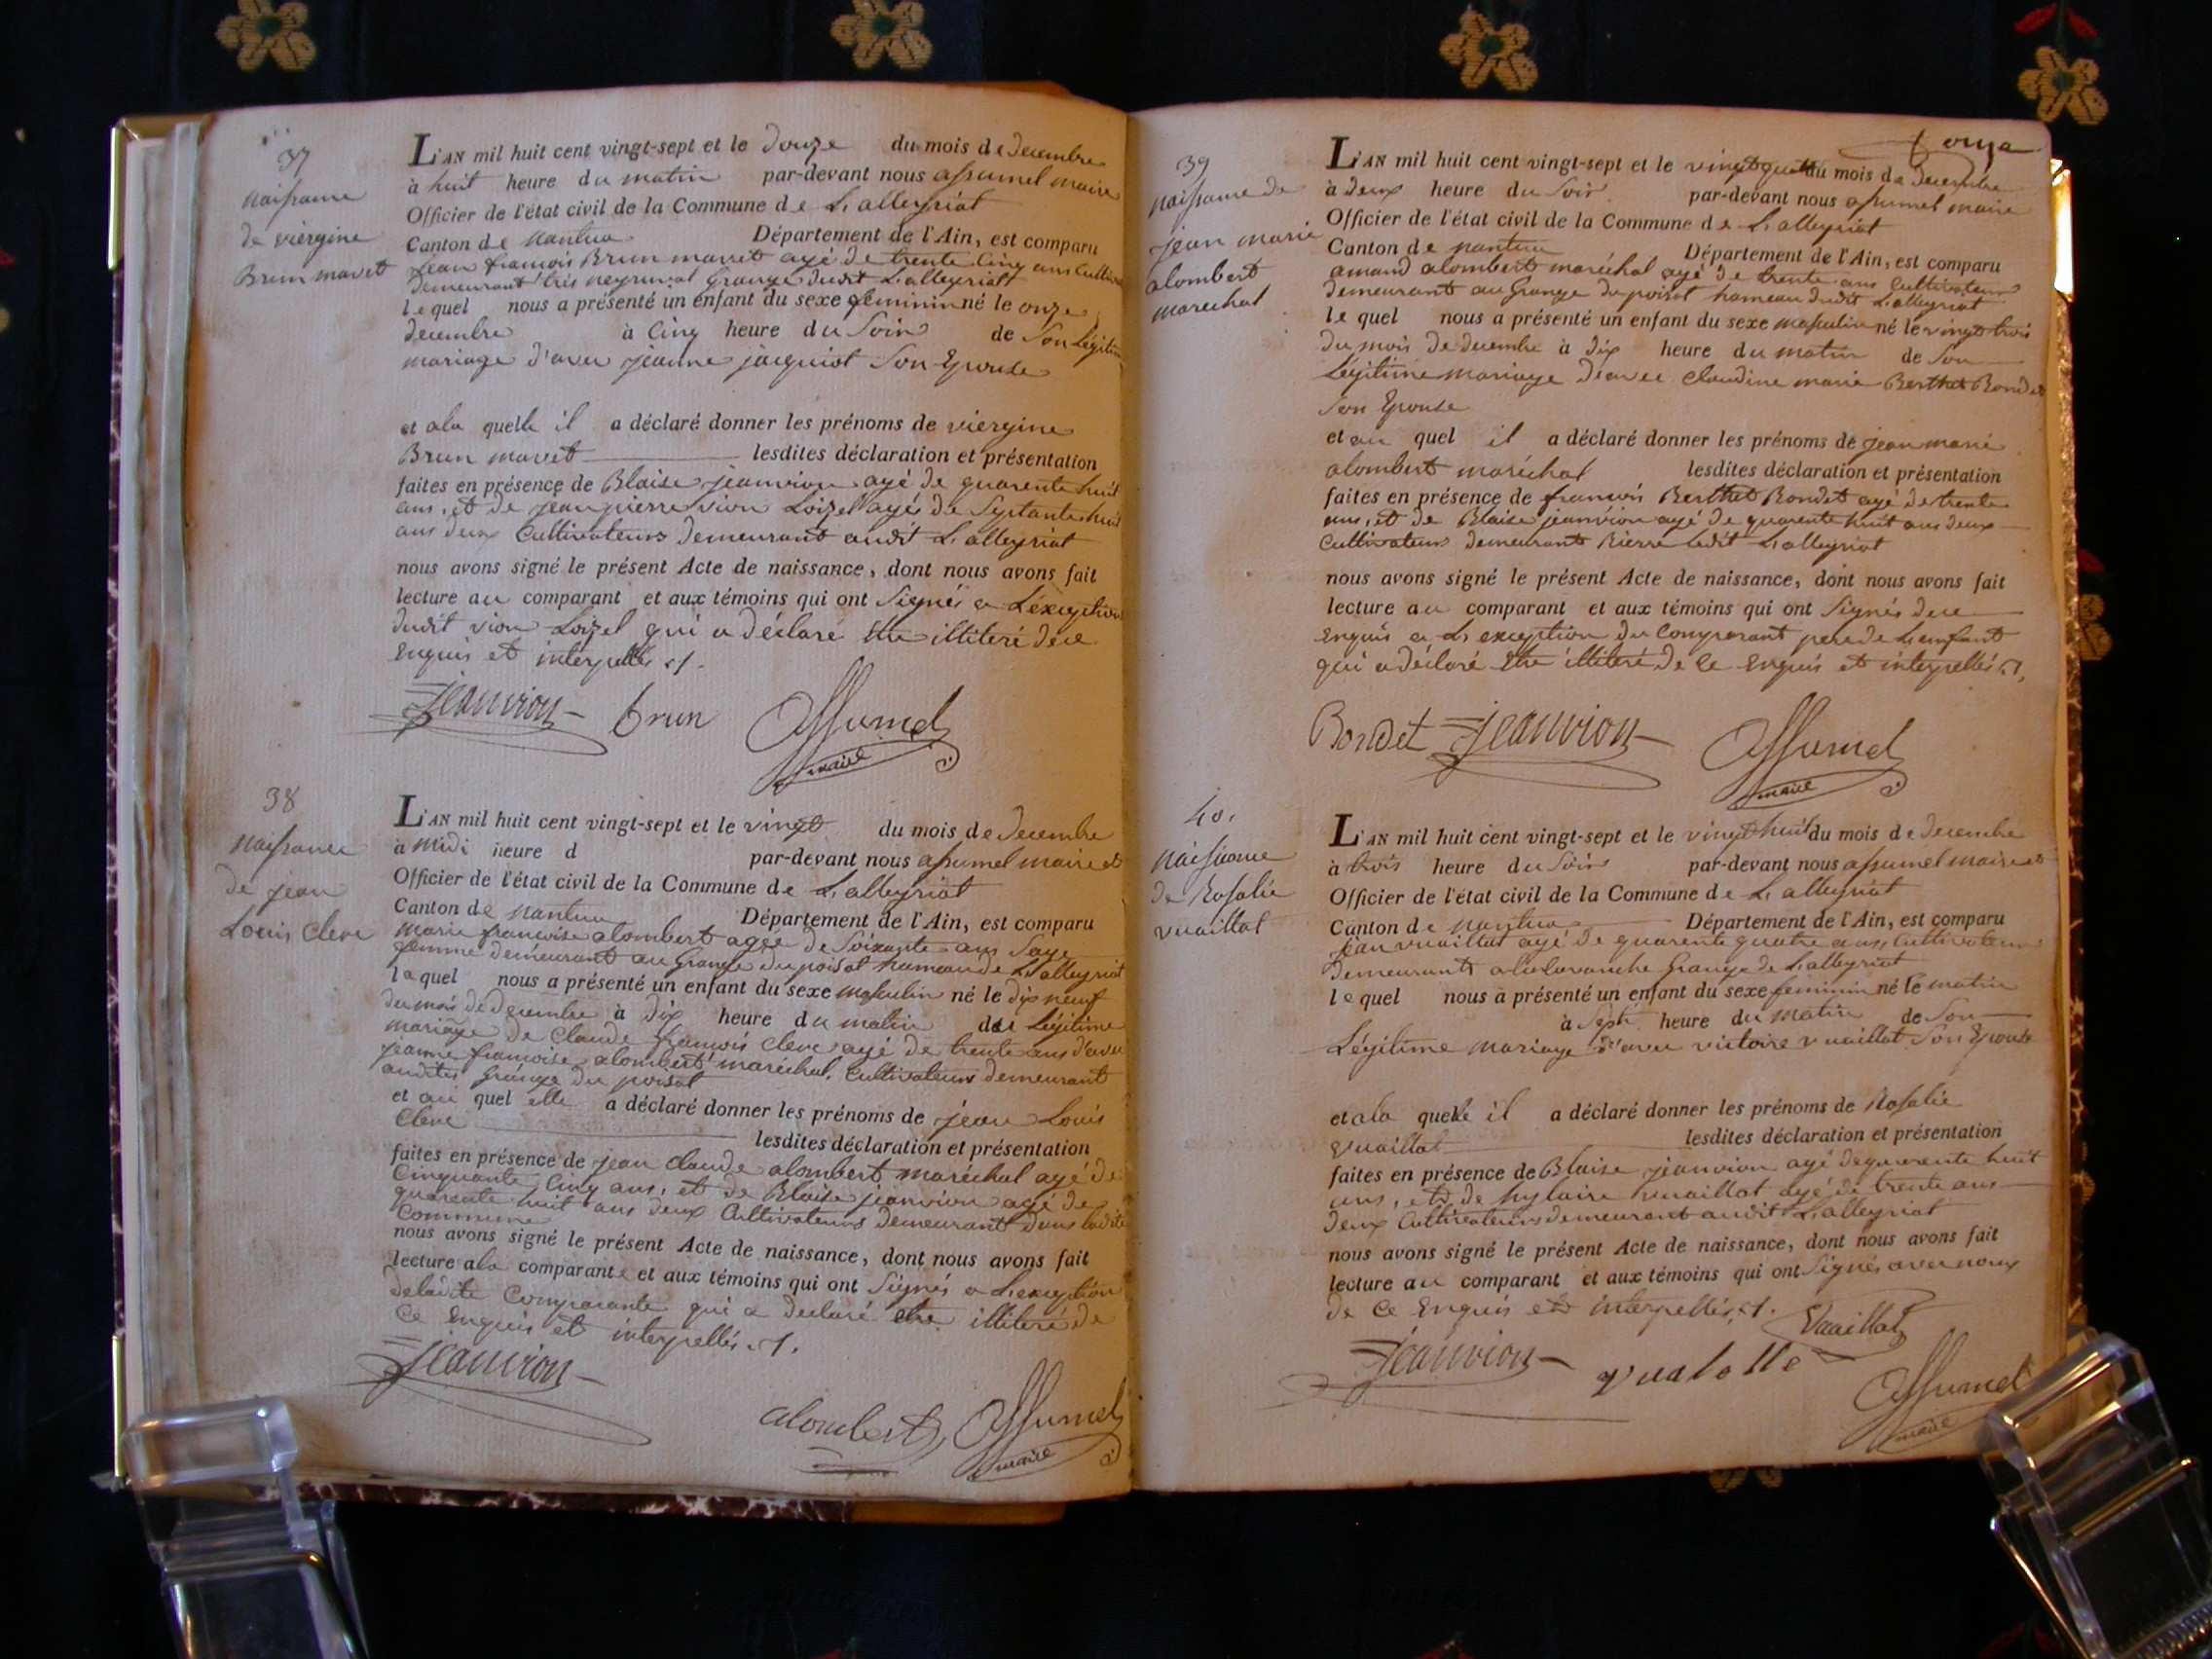 37
naissance
de viergine
Brun mavet
L'AN mil huit cent vingt-sept et le douze du mois de decembre
à huit heure du matin par-devant nous assumel maire
Officier de l'état civil de la Commune de L'alleyriat
Canton de nantua Département de l'Ain, est comparu
jean francois Brun mavet agé de trente cinq ans Cultiva
demeurant Grange dudit L'alleyriat
lequel nous a présenté un enfant du sexe feminin né le onze
decembre à Cinq heure du Soir de Son Légitime
mariage d'avec jeanne jacquiot Son Epouse
et ala quelle il a déclaré donner les prénoms de viergine
Brun mavet lesdites déclaration et présentation
faites en présence de Blaise jeanvion agé de quarente huit
ans, et de jean pierre vion Loizel agés de Septante huit
ans deux Cultivateurs demeurant audit L'alleyriat
nous avons signé le présent Acte de naissance, dont nous avons fait
lecture au comparant et aux témoins qui ont Signés a L'exception
dudit vion Loizel qui a déclaré être illiteré de ce
Enquis et interpellés
jeanvion brun assumel
maire
38
naissance
de jean
Louis Clerc
L'AN mil huit cent vingt-sept et le vingt du mois de decembre
à midi heure d par-devant nous assumel maire et
Officier de l'état civil de la Commune de L'alleyriat
Canton de nantua Département de l'Ain, est comparu
Marie francoise alombert agée de Soixante ans Sage
femme demeurant au Grange du poisat hameau de L'alleyriat
laquel nous a présenté un enfant du sexe masculin né le dix neuf
du mois de decembre à dix heure du matin de Légitime
mariage de Claude francois Clerc agé de trente ans d'avec
jeanne francoise alombert maréchal, Cultivateurs demeurant
audites Grange du poisat
et au quel elle a déclaré donner les prénoms de jean Louis
Clerc lesdites déclaration et présentation
faites en présence de jean claude alombert maréchal agé de
Cinquante Cinq ans, et de Blaise jeanvion agé de
quarente huit ans deux Cultivateurs demeurant dans ladite
Commune
nous avons signé le présent Acte de naissance, dont nous avons fait
lecture ala comparante et aux témoins qui ont Signés a L'exception
deladite Comparante qui a declaré etre illiteré de
Ce Enquis et interpellés
jeanvion
alombert assumel
maire
39
naissance de
jean marie
alombert
marechal
L'AN mil huit cent vingt-sept et le vingt quatre du mois de decembre
à deux heure du Soir par-devant nous assumel maire
Officier de l'état civil de la Commune de L'alleyriat
Canton de nantua Département de l'Ain, est comparu
amand alombert maréchal agé de trente ans Cultivateur
demeurant au Grange du poisat hameau dudit L'alleyriat
lequel nous a présenté un enfant du sexe masculin né le vingt trois
du mois de decembre à dix heure du matin de Son
Légitime mariage d'avec claudine marie Berthet Bondet
Son Epouse
et au quel il a déclaré donner les prénoms de jean marie
alombert maréchal lesdites déclaration et présentation
faites en présence de francois Berthet Bondet agé de trente
ans, et de Blaise jeanvion agé de quarente huit ans deux
Cultivateurs demeurants ledit L'alleyriat
nous avons signé le présent Acte de naissance, dont nous avons fait
lecture au comparant et aux témoins qui ont Signés de ce
Enquis a L'exception du Comparant pere de L'enfant
qui a déclaré être illiteré de ce Enquis et interpellés
Bondet jeanvion assumel
maire
40.
naissance
de Rosalie
vuaillat
L'AN mil huit cent vingt-sept et le vingt huit du mois de decembre
à trois heure du Soir par-devant nous assumel maire et
Officier de l'état civil de la Commune de L'alleyriat
Canton de nantua Département de l'Ain, est comparu
jean vuaillat agé de quarente quatre ans Cultivateur
demeurant Grange de L'alleyriat
lequel nous a présenté un enfant du sexe feminin né le matin
à Sept heure du matin de Son
Légitime mariage d'avec victoire vuaillat Son Epouse
et ala quelle il a déclaré donner les prénoms de Rosalie
vuaillat lesdites déclaration et présentation
faites en présence de Blaise jeanvion agé de quarente huit
ans, et de hylaire vuaillat agé de trente ans
deux Cultivateurs demeurant audit L'alleyriat
nous avons signé le présent Acte de naissance, dont nous avons fait
lecture au comparant et aux témoins qui ont Signés avec nous
de Ce Enquis et interpellés
Vuaillat
jeanvion assumel
maire